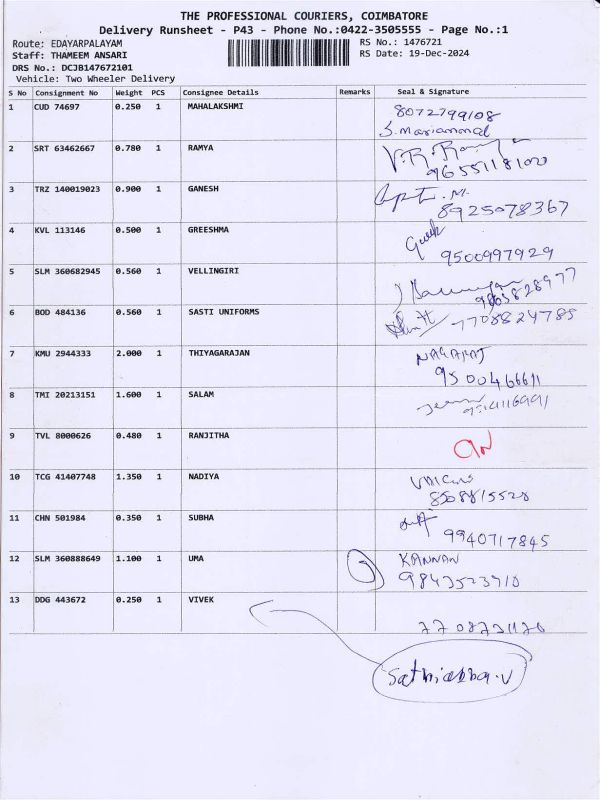 THE PROFESSIONAL COURIERS, COIMBATORE
Delivery Runsheet - P43 - Phone No.:0422-3505555 - Page No.:1
Route: EDAYARPALAYAM
Staff: THAMEEM ANSARI
DRS No.: DCJB147672101
Vehicle: Two Wheeler Delivery
RS No.: 1476721
RS Date: 19-Dec-2024
S No Consignment No Weight PCS Consignee Details Remarks Seal & Signature
1 CUD 74697 0.250 1 MAHALAKSHMI 8072799108
S. Mariammal
2 SRT 63462667 0.780 1 RAMYA
9655118100
3 TRZ 140019023 0.900 1 GANESH
8925078367
4 KVL 113146 0.500 1 GREESHMA
9500997929
5 SLM 360682945 0.560 1 VELLINGIRI
6 BOD 484136 0.560 1 SASTI UNIFORMS 7708824785
7 KMU 2944333 2.000 1 THIYAGARAJAN NAGARAJ
9500466611
8 TMI 20213151 1.600 1 SALAM
9 TVL 8000626 0.480 1 RANJITHA
10 TCG 41407748 1.350 1 NADIYA
8508815528
11 CHN 501984 0.350 1 SUBHA
9940717845
12 SLM 360888649 1.100 1 UMA KANNAN
9843523910
13 DDG 443672 0.250 1 VIVEK